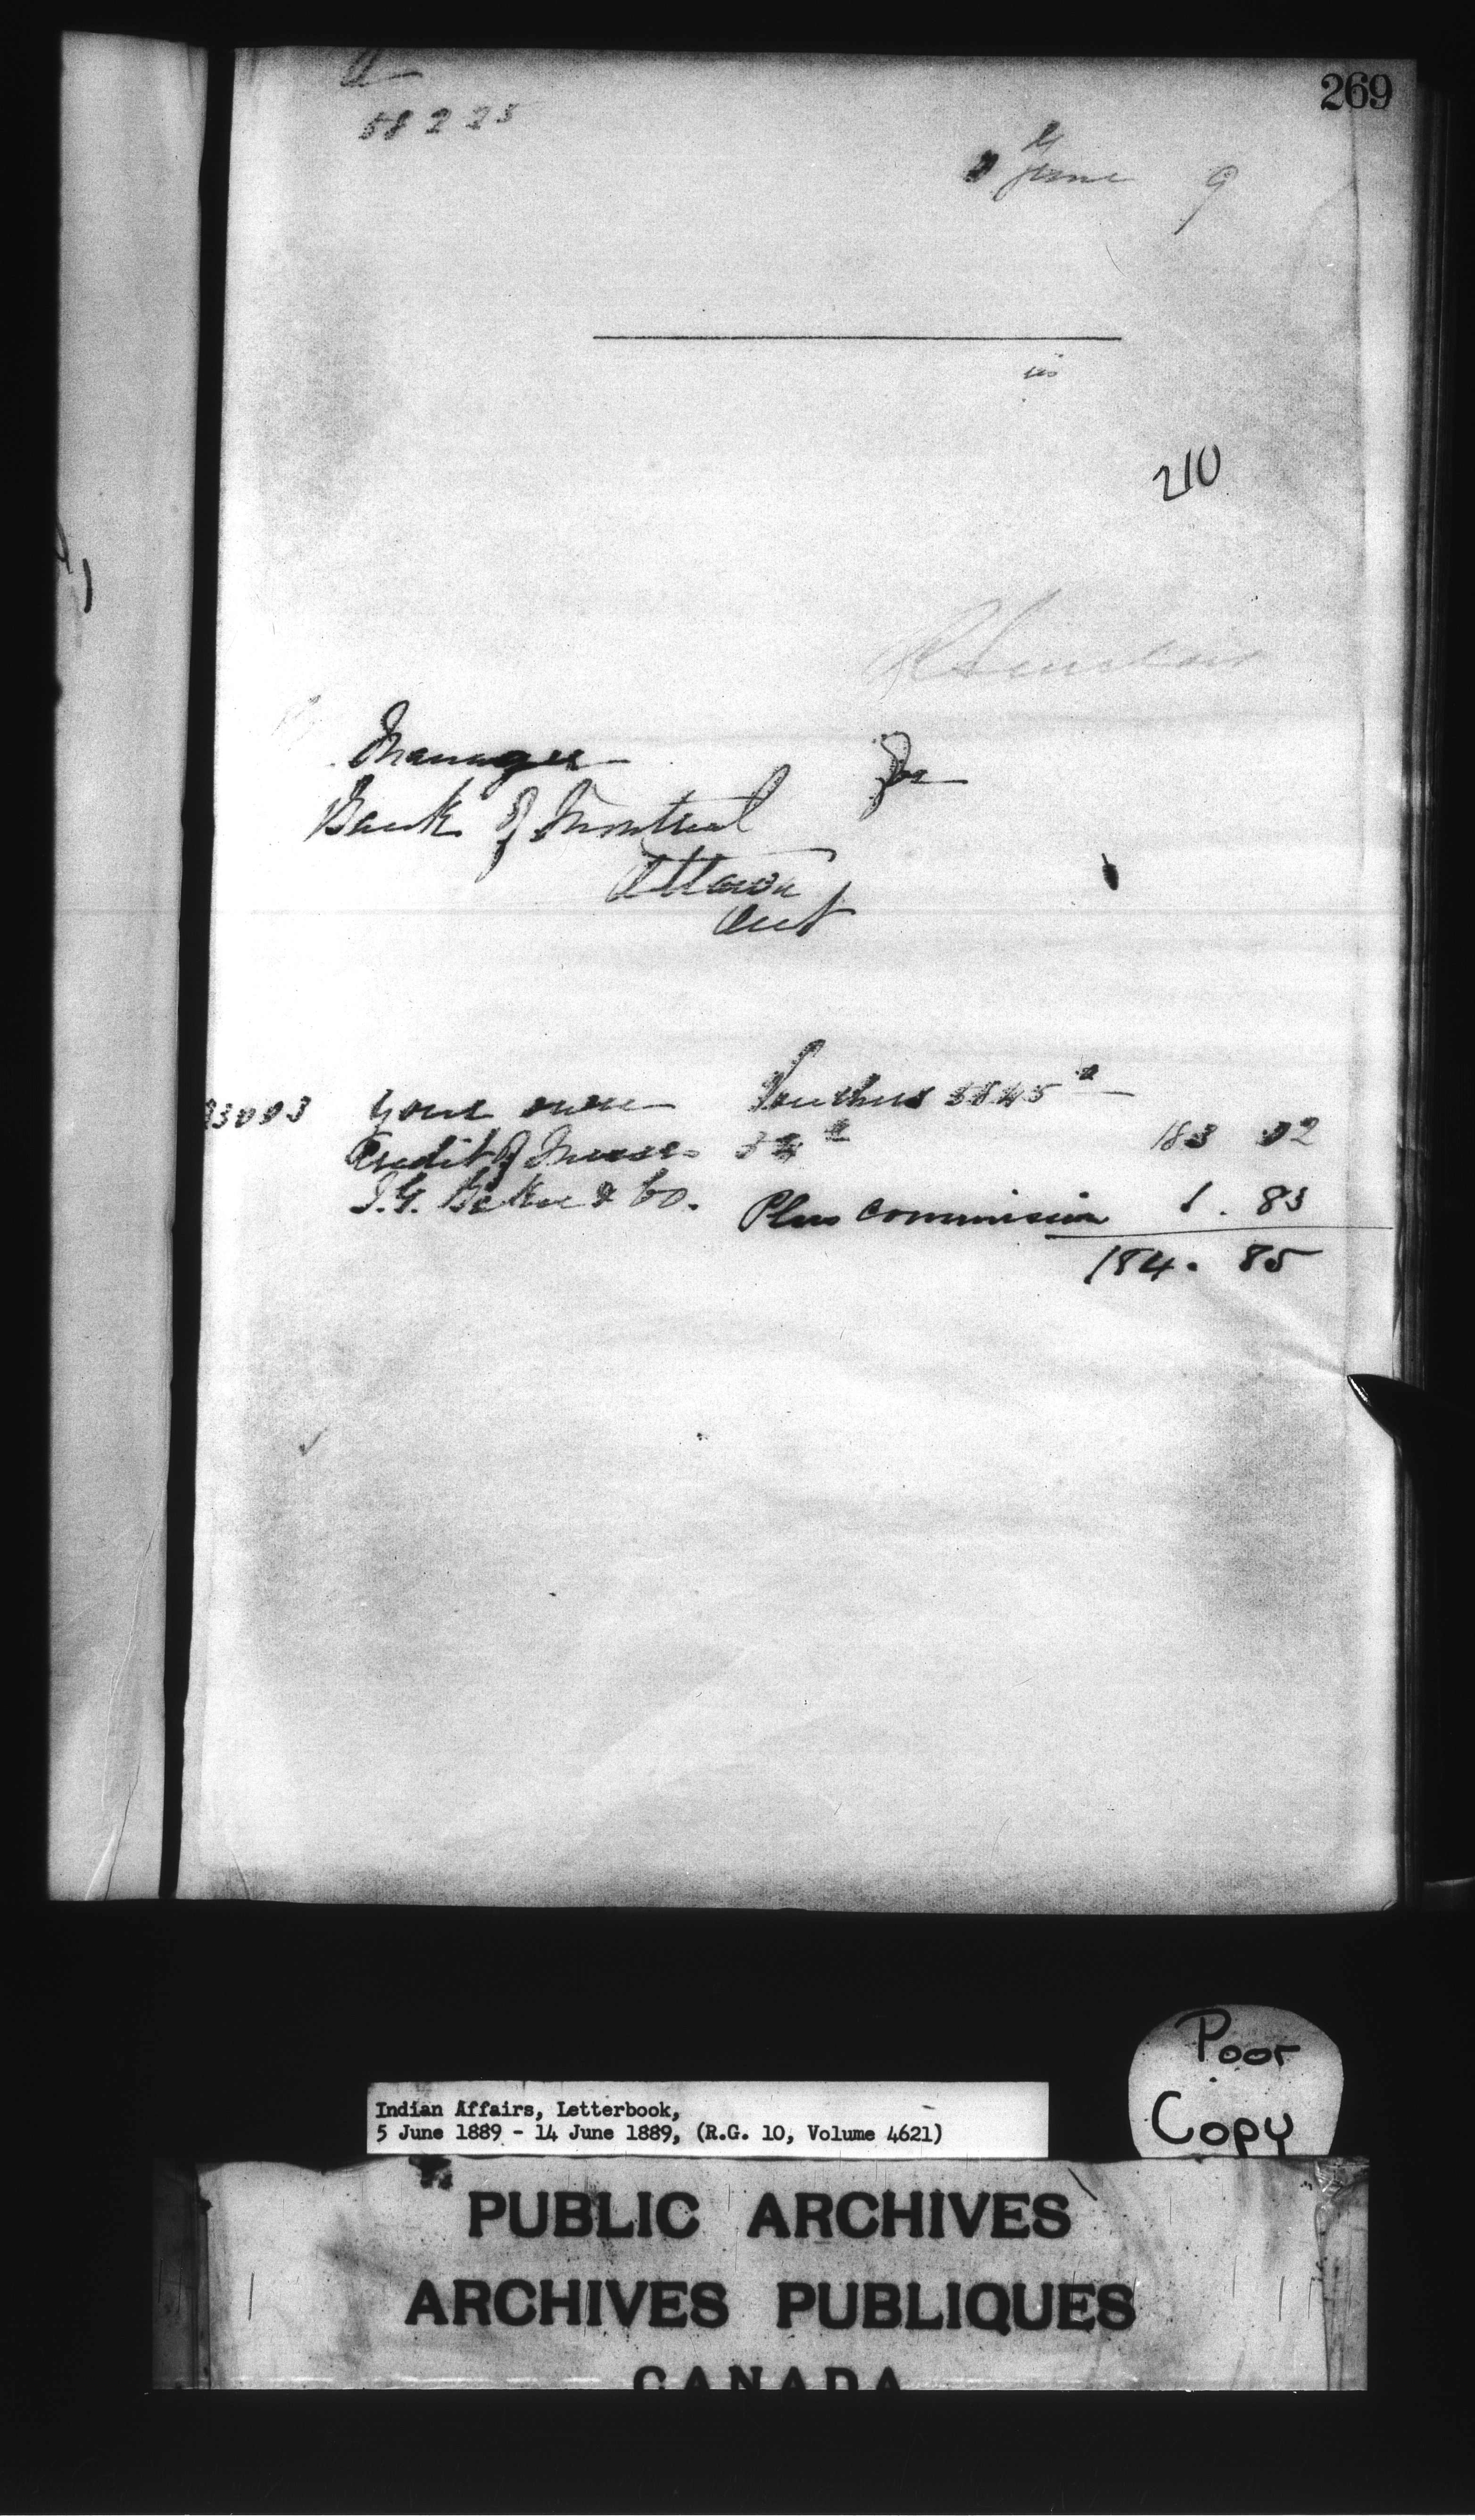 269
58225
June 9
210
R Sinclair
Manager
Bank of Montreal
For
Ottawa
Ont
93003 your own Vouchers 5845
Credit of Messrs 183 02
I.G. Baker & Co. Plus commission 1.83
184.85
Poor
Copy
Indian Affairs, Letterbook,
5 June 1889 - 14 June 1889, (R.G. 10, Volume 4621)
PUBLIC ARCHIVES
ARCHIVES PUBLIQUES
CANADA